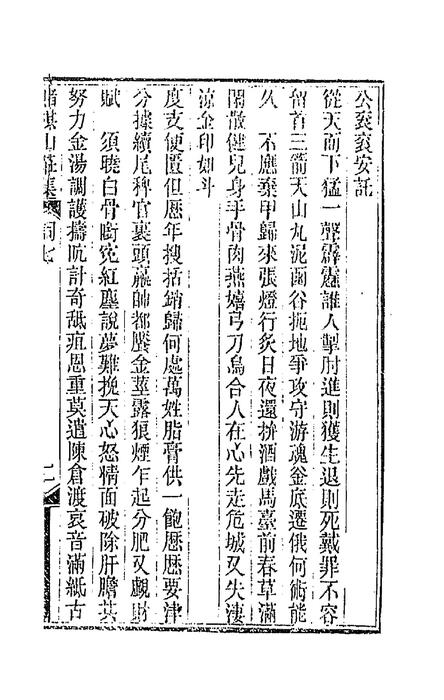 公袞袞安託
從天而下猛一聲霹靂誰人掣肘進則獲生退則死戴罪不容
留首三箭天山丸泥函谷扼地爭攻守游魂釜底遷俄何術能
久　不應棄甲歸來張燈行炙日夜還拚酒戲馬臺前春草滿
閒散健兒身手骨肉燕嬉弓刀烏合人在心先走危城又失淒
涼金印如斗
度支便匱但歷年搜括納歸何處萬姓脂膏供一飽歷歷要津
分據續尾稗官裹頭羸帥都賸金莖露狼煙乍起分肥又覷財
賦　須曉白骨斷寃紅塵說夢難挽天心怒情面破除肝膽共
努力金湯調護擣吭計奇舐疽恩重莫遣陳倉渡哀音滿紙古
賭棋山莊集　詞七　二